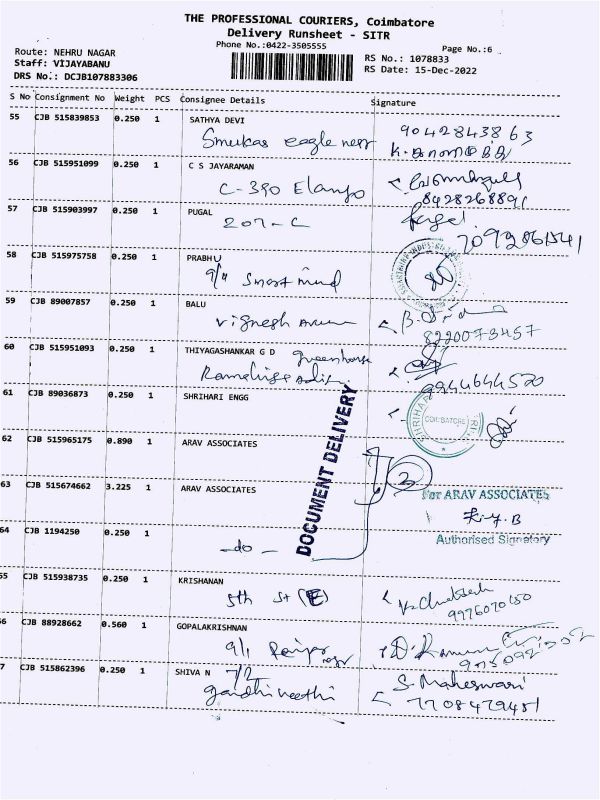 THE PROFESSIONAL COURIERS, Coimbatore
Delivery Runsheet - SITR
Phone No.:0422-3505555
Page No.:6
Route: NEHRU NAGAR
Staff: VIJAYABANU
DRS No.: DCJB107883306
RS No.: 1078833
RS Date: 15-Dec-2022
S No Consignment No Weight PCS Consignee Details Signature
55 CJB 515839853 0.250 1 SATHYA DEVI
9042843863
56 CJB 515951099 0.250 1 C S JAYARAMAN
C-390 Elango
8428268891
57 CJB 515903997 0.250 1 PUGAL
207-C
7092861541
58 CJB 515975758 0.250 1 PRABHU
9/4 Smart mind
59 CJB 89007857 0.250 1 BALU
Vignesh
8220073457
60 CJB 515951093 0.250 1 THIYAGASHANKAR G D greenhouse
9944644520
61 CJB 89036873 0.250 1 SHRIHARI ENGG
COIMBATORE
DOCUMENT DELIVERY
62 CJB 515965175 0.890 1 ARAV ASSOCIATES
2
63 CJB 515674662 3.225 1 ARAV ASSOCIATES
For ARAV ASSOCIATES
64 CJB 1194250 0.250 1
-do-
Authorised Signatory
65 CJB 515938735 0.250 1 KRISHANAN
5th St (E)
9976070150
66 CJB 88928662 0.560 1 GOPALAKRISHNAN
9/1
67 CJB 515862396 0.250 1 SHIVA N 7/2
gandhiveethi
S. Maheswari
7708479451